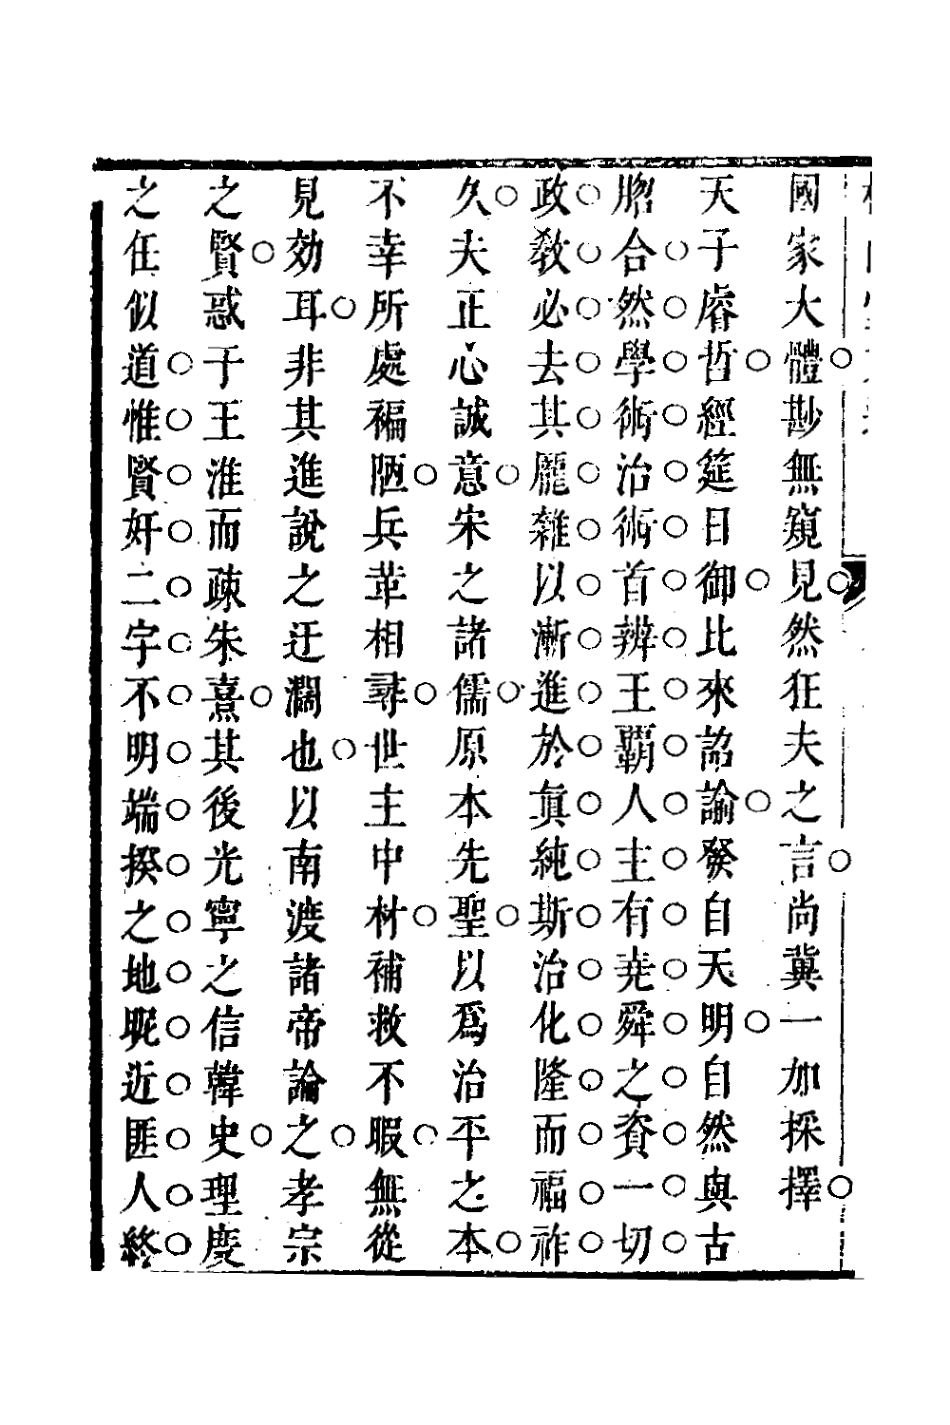 國家大體尠無窺見然狂夫之言尚冀一加採擇
天子睿哲經筵日御比來詔諭發自天明自然與古
脗合然學術治術首辨王霸人主有堯舜之資一切
政教必去其龐雜以漸進於眞純斯治化隆而福祚
久夫正心誠意宋之諸儒原本先聖以爲治平之本
不幸所處褊陋兵革相尋世主中材補救不暇無從
見効耳非其進說之迂濶也以南渡諸帝論之孝宗
之賢惑于王淮而疎朱熹其後光寧之信韓史理慶
之任似道惟賢奸二字不明端揆之地昵近匪人終